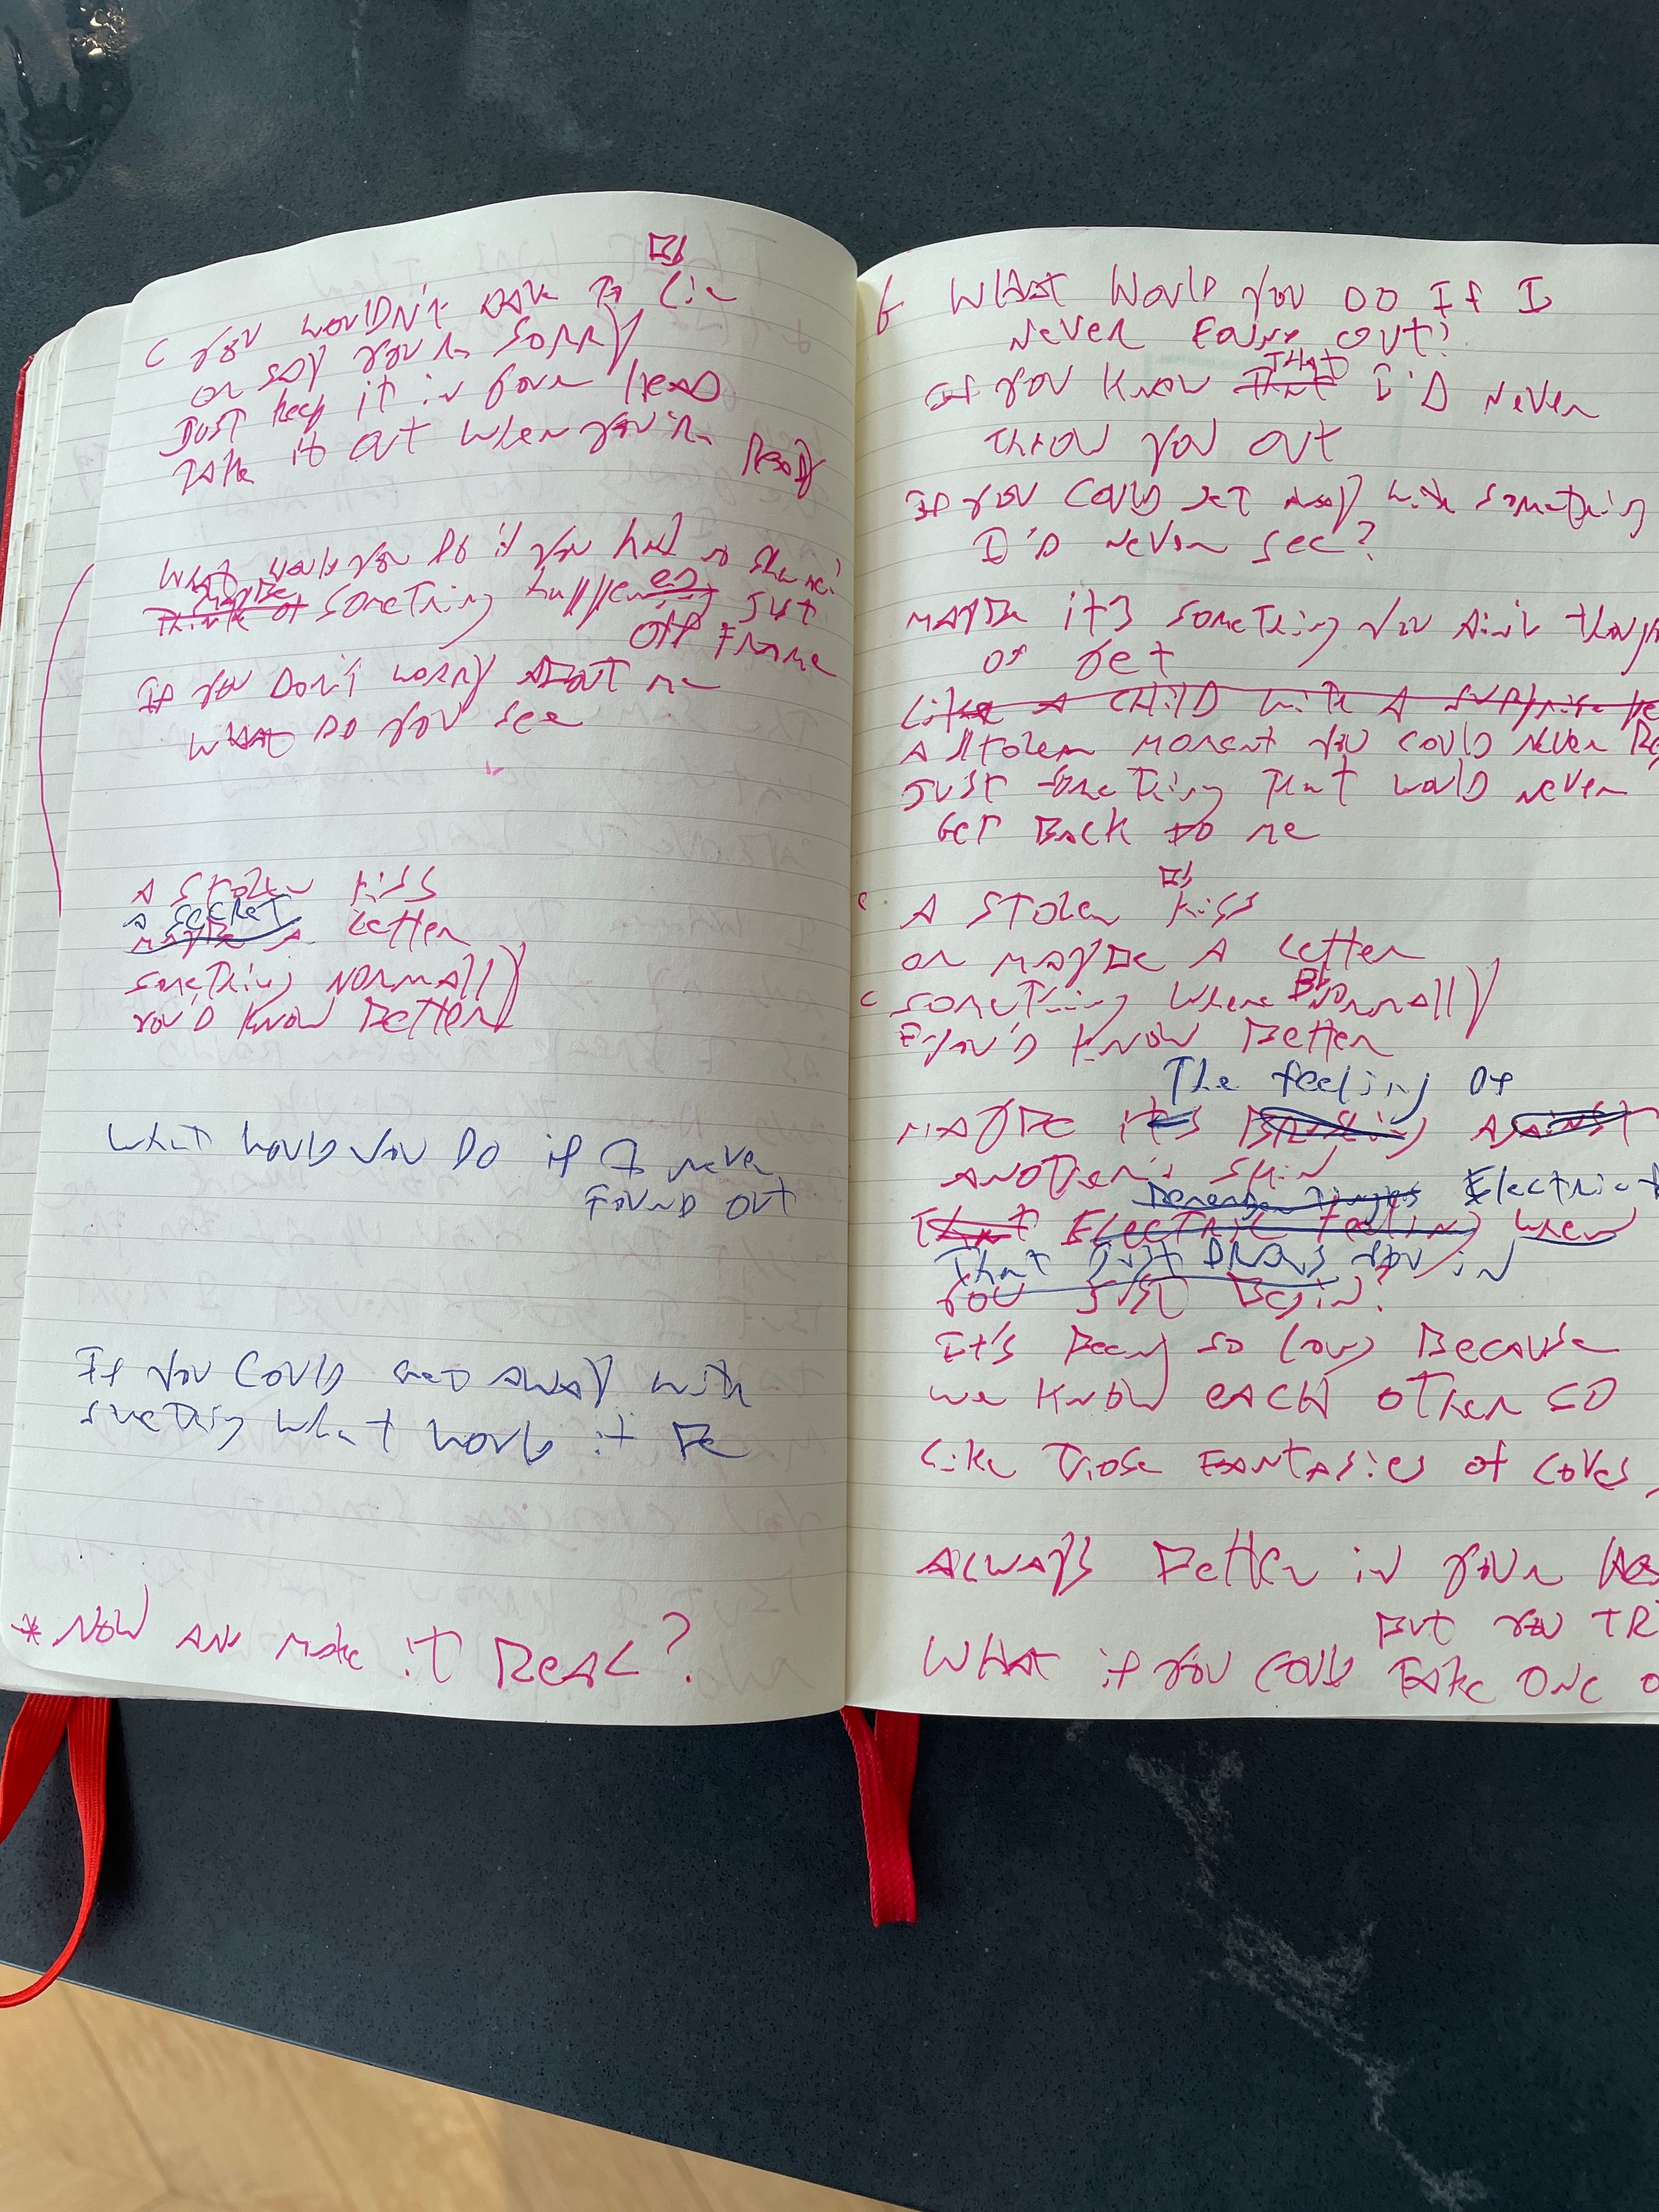 Bb
C YOU WOULDN'T HAVE TO LIE
OR SAY YOU'RE SORRY
JUST keep it in YOUR HEAD
TAKE it OUT WHEN YOU'RE READY
WHAT would you do if you had no shame?
MAYBE
Think of SOMETHING happening en JUST
OFF FRAME
IF YOU DON'T WORRY ABOUT ME
WHAT DO YOU SEE
A STOLEN KISS
A SECRET
MAYBE A LETTER
SOMETHING NORMALLY
YOU'D KNOW BETTER
WHAT WOULD YOU DO if I never
FOUND OUT
If YOU COULD GET AWAY with
something what would it BE
* NOW AND MAKE it REAL?
F WHAT WOULD YOU DO If I
NEVER FOUND OUT?
THAT
If YOU KNOW THAT I'D NEVER
THROW YOU OUT
If YOU COULD GET AWAY with something
I'D NEVER see?
MAYBE it's SOMETHING YOU AIN'T
OF YET
LIKE A CHILD with A SURPRISE
A STOLEN MOMENT YOU COULD NEVER
JUST SOMETHING THAT WOULD NEVER
GET BACK to ME
Bb
C A STOLEN KISS
OR MAYBE A LETTER
Bb
C SOMETHING WHERE NORMALLY
F YOU'D KNOW BETTER
The feeling OF
MAYBE it's BRUSHING AGAINST
ANOTHER'S SKIN
ELECTRIC FEELING when
That just DRAWS YOU in
YOU JUST BEGIN?
It's BEEN SO LONG BECAUSE
WE KNOW EACH OTHER SO
LIKE THOSE FANTASIES OF
ALWAYS BETTER IN YOUR
BUT YOU
WHAT if YOU COULD TAKE ONE